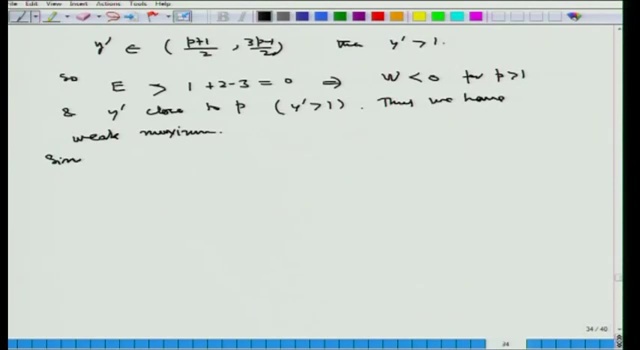 File Edit View Insert Actions Tools Help
y' ∈ ( p+1/2 , 3p-1/2 ) then y' > 1.
so E > 1 + 2 - 3 = 0 ⇒ W < 0 for p > 1
& y' close to p ( y' > 1 ) . Thus we have
weak maximum.
Sim
34 / 40
34